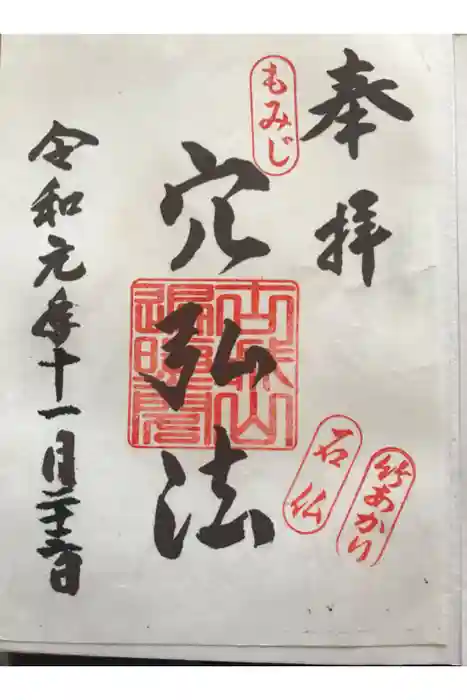 奉拝
竹あかり
石仏
もみじ
穴弘法
令和元年十一月二十三日